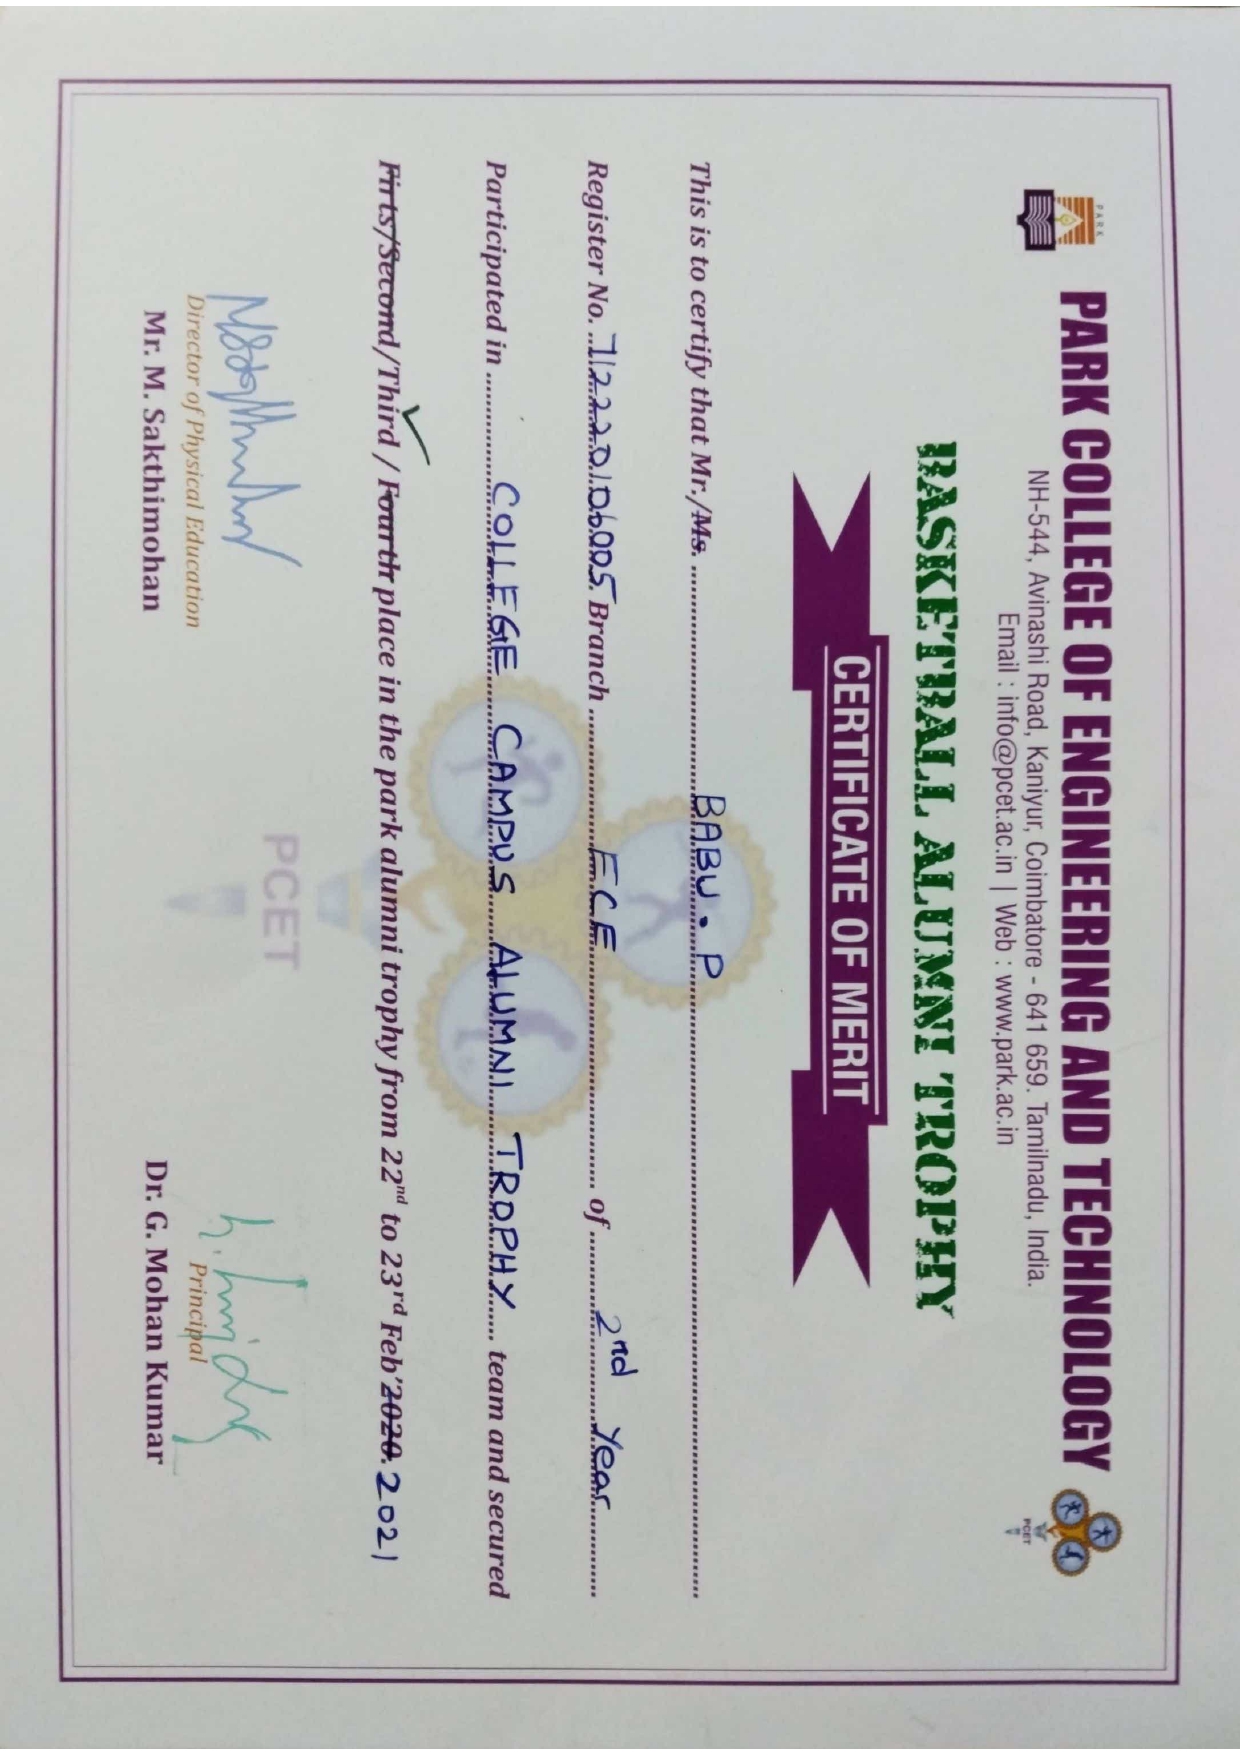 PARK
PARK COLLEGE OF ENGINEERING AND TECHNOLOGY
NH-544, Avinashi Road, Kaniyur, Coimbatore - 641 659. Tamilnadu, India.
Email : info@pcet.ac.in | Web : www.park.ac.in
PCET
BASKETBALL ALUMNI TROPHY
CERTIFICATE OF MERIT
This is to certify that Mr./Ms. BABU. P
Register No. 712220106005 Branch ECE of 2nd Year
Participated in COLLEGE CAMPUS ALUMNI TROPHY team and secured
Firts/Second/Third / Fourth place in the park alumni trophy from 22nd to 23rd Feb'2020. 2021
PCET
Director of Physical Education
Mr. M. Sakthimohan
Principal
Dr. G. Mohan Kumar